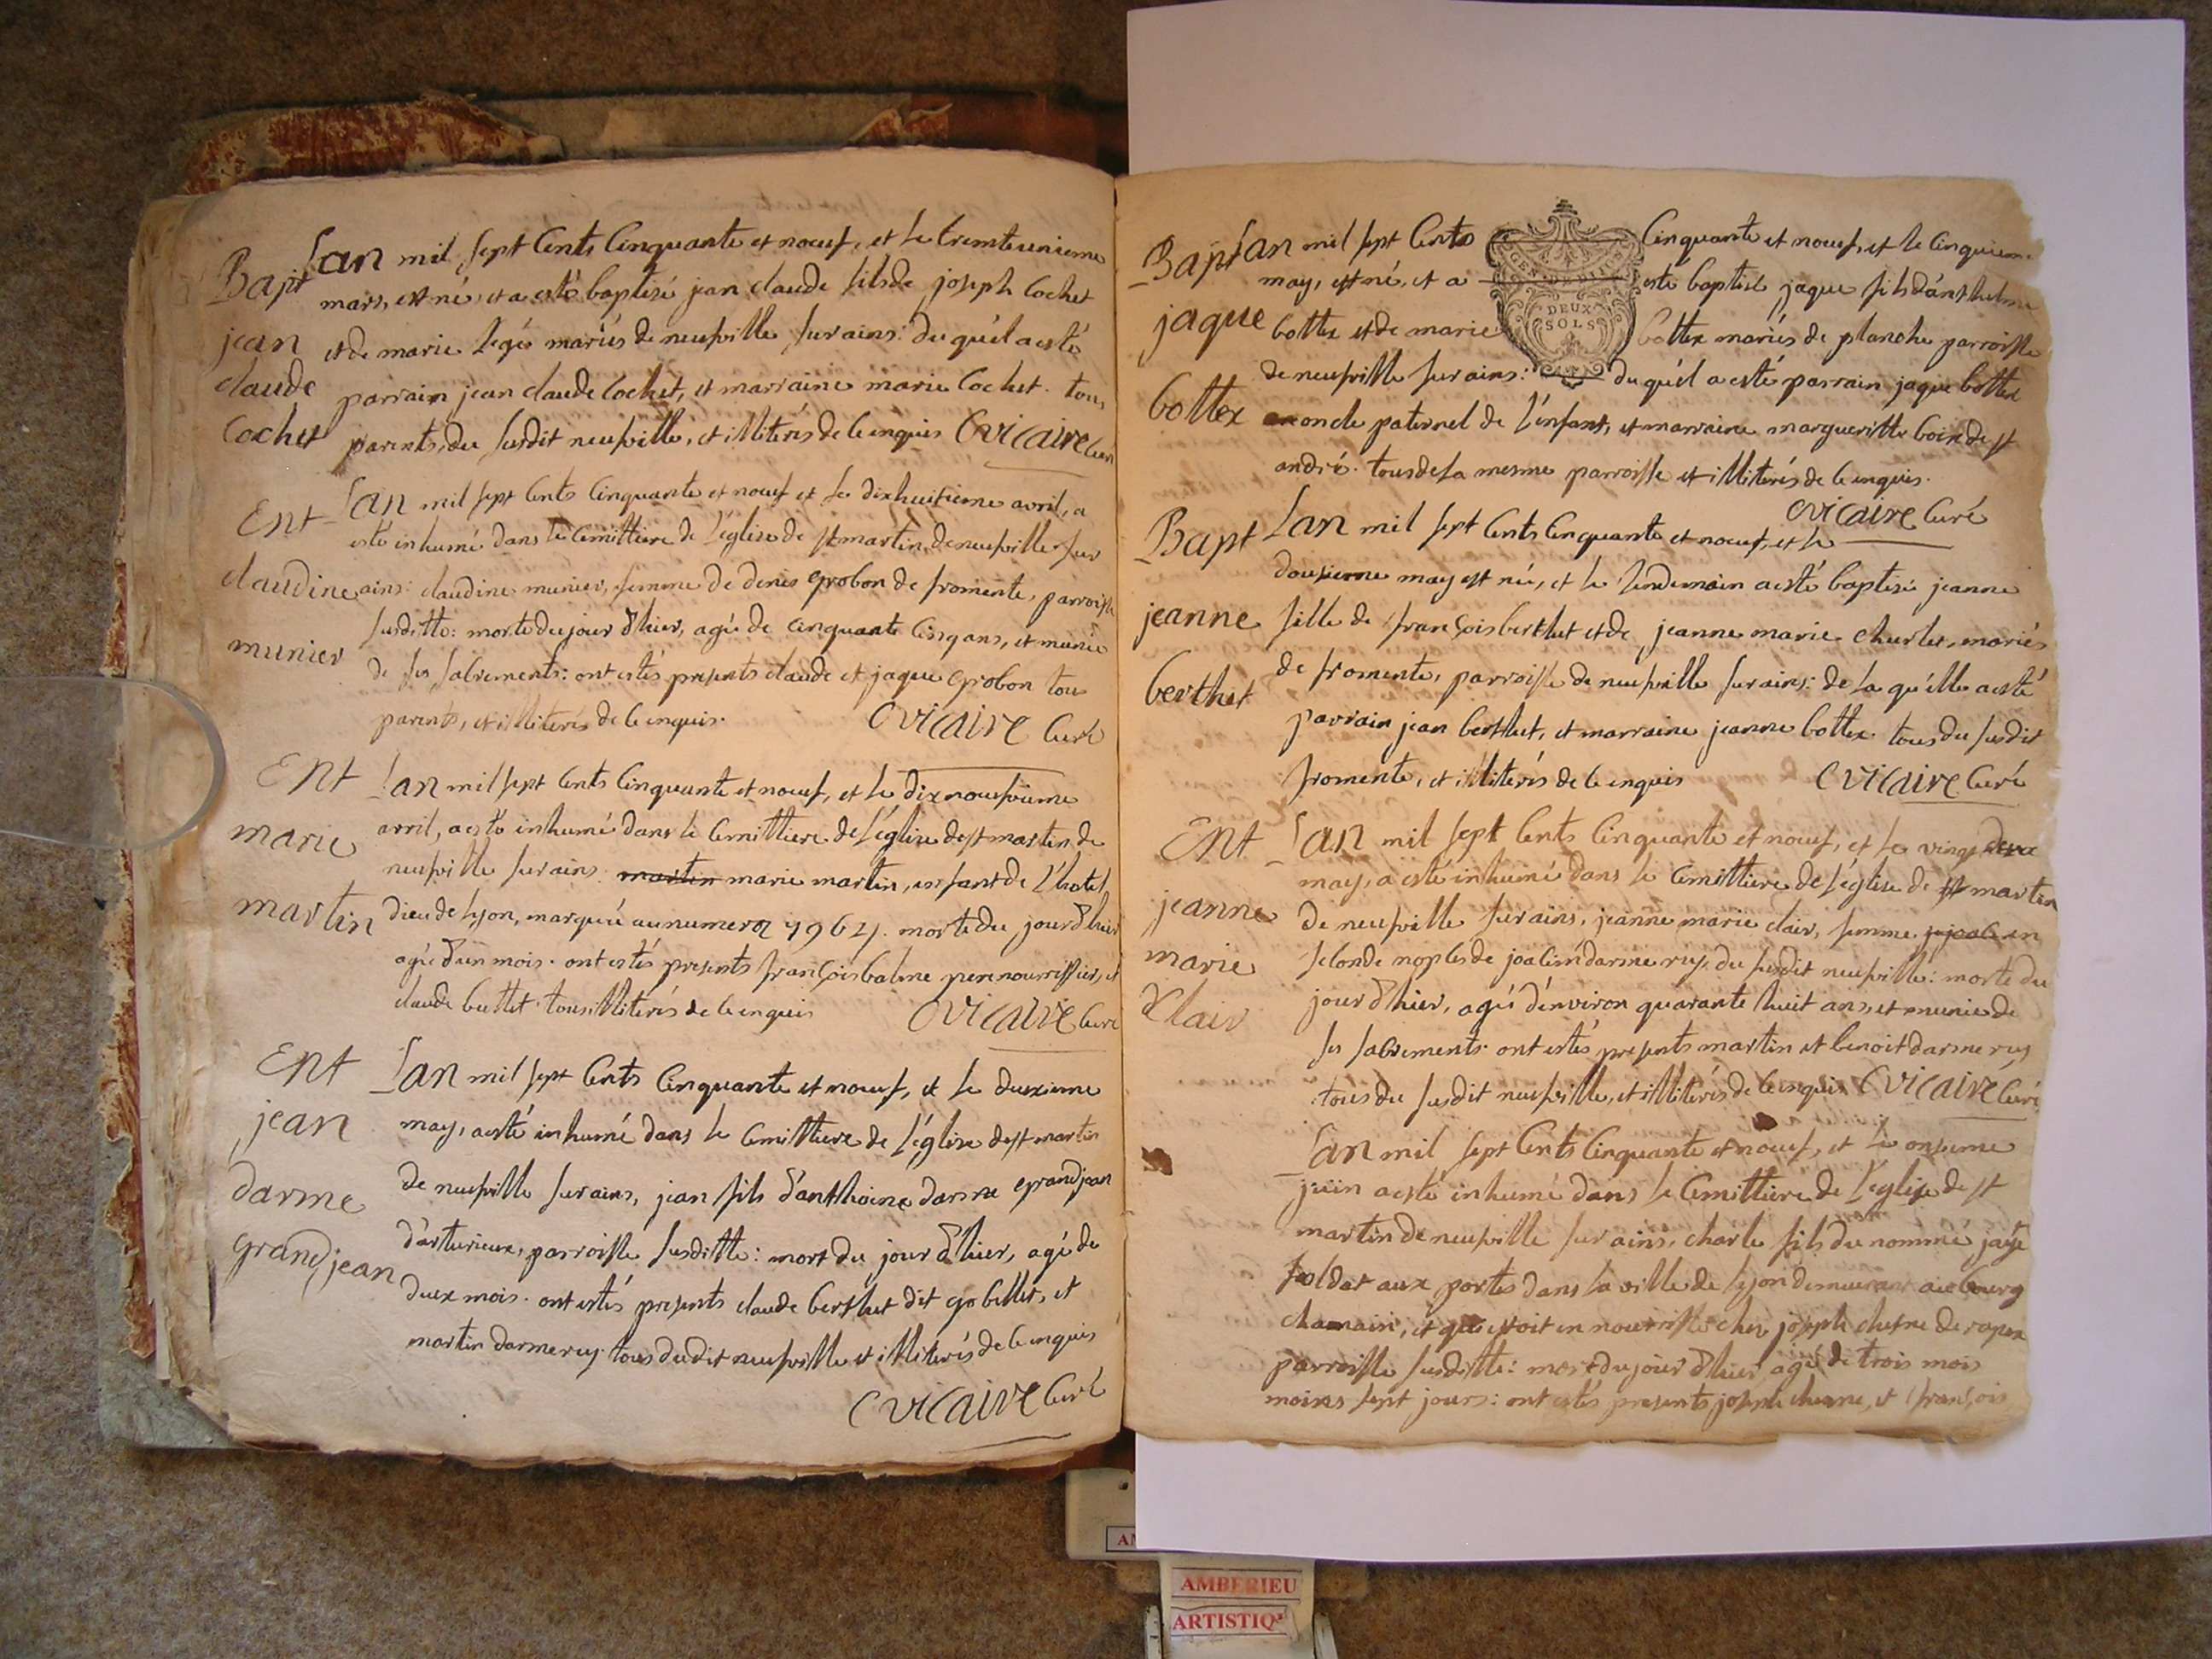 Bapt
jean
claude
cochet
L'an mil sept cents cinquante et noeuf, et le trenteunieme
mars, est né, et a esté baptisé jean claude fils de joseph cochet
et de marie legé mariés de neufville sur ains: du quél a esté
parrain jean claude cochet, et marraine marie cochet. tous
parents, du susdit neufville, et illiterés de ce enquis C vicaire curé
Ent
claudine
munier
L'an mil sept cents cinquante et noeuf et le dixhuitieme avril, a
esté inhumé dans le cemittiere de l'église de st martin de neufville sur
ains: claudine munier, femme de denis grobon de fromente, parroisse
susditte: morte du jour d'hier, agée de cinquante cinq ans, et munie
de ses sacrements: ont estés presents claude et jaque grobon tous
parents, et illiterés de ce enquis. C vicaire curé
Ent
marie
martin
L'an mil sept cents cinquante et noeuf, et le dix noeufvieme
avril, a esté inhumé dans le cemittiere de l'église de st martin de
neufville sur ains martin marie martin, enfant de l'hotel
dieu de lyon, marquée au numero 1962. morte du jour d'hier
agée d'un mois. ont estés presents françois balme pere nourrissier, et
claude buttet tous illiterés de ce enquis C vicaire curé
Ent
jean
darme
grandjean
L'an mil sept cents cinquante et noeuf, et le deuxieme
may, a esté inhumé dans le cemittiere de l'église de st martin
de neufville sur ains, jean fils d'anthoine darme grandjean
d'arturieux, parroisse susditte: mort du jour d'hier, agé de
deux mois. ont estés presents claude berthet dit gobillet, et
martin darmerey tous dudit neufville et illiterés de ce enquis
C vicaire curé
Bapt
jaque
bottex
L'an mil sept cents cinquante et noeuf, et le cinquieme
GEN DEUX SOLS
may, est né, et a esté baptisé jaque fils d'anthelme
bottex et de marie bottex mariés de planche parroisse
de neufville sur ains: du quél a esté parrain jaque bottex
oncle paternel de l'enfant, et marraine margueritte boin de st
andré. tous de la mesme parroisse et illiterés de ce enquis.
C vicaire curé
Bapt
jeanne
berthet
L'an mil sept cents cinquante et noeuf, et le
dousieme may est née, et le lendemain a esté baptisé jeanne
fille de françois berthet et de jeanne marie churlet, mariés
de fromente, parroisse de neufville sur ains: de la qu'élle a esté
parrain jean berthet, et marraine jeanne bottex. tous du susdit
fromente, et illiterés de ce enquis C vicaire curé
Ent
jeanne
marie
Clair
L'an mil sept cents cinquante et noeuf, et le vingt deux
may, a esté inhumé dans le cemittiere de l'église de st martin
de neufville sur ains, jeanne marie clair, femme en
seconde noples de joacim darmerey, du susdit neufville: morte du
jour d'hier, agée d'environ quarante huit ans, et munie de
ses sacrements. ont estés presents martin et benoit darmerey
tous du susdit neufville, et illiterés de ce enquis C vicaire curé
L'an mil sept cents cinquante et noeuf, et le onsieme
juin a esté inhumé dans le cemittiere de l'église de st
martin de neufville sur ains, charle fils du nommé jayé
soldat aux portes dans la ville de lyon demeurant au bourg
chamain, et qui estoit en nourrisse chez joseph chesne de rapex
parroisse susditte: mort du jour d'hier agé de trois mois
moins sept jours: ont estés presents joseph chesne, et françois
AMBERIEU
ARTISTIQ